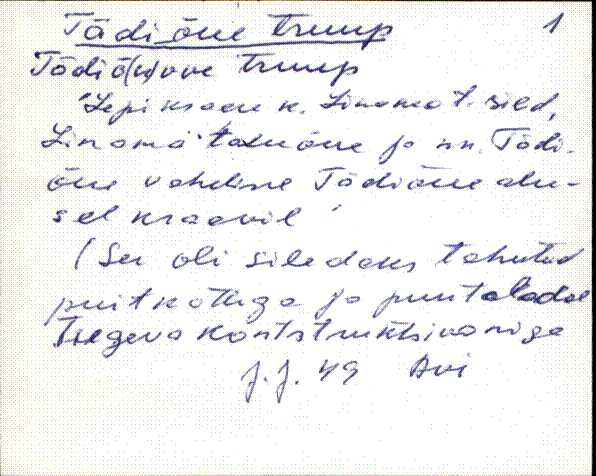 Tädiõue truup 1
Tädiõ(u)vve truup
"Lepiku k. Linamä t. sild,
Linamä taluõue ja nn. Tädi-
õue vahelise Tädiõue alu-
sel kraavil"
(See oli siledaks tahutud
puitkattega ja puitaladel
konstruktsiooniga
J.J. 49 Avi